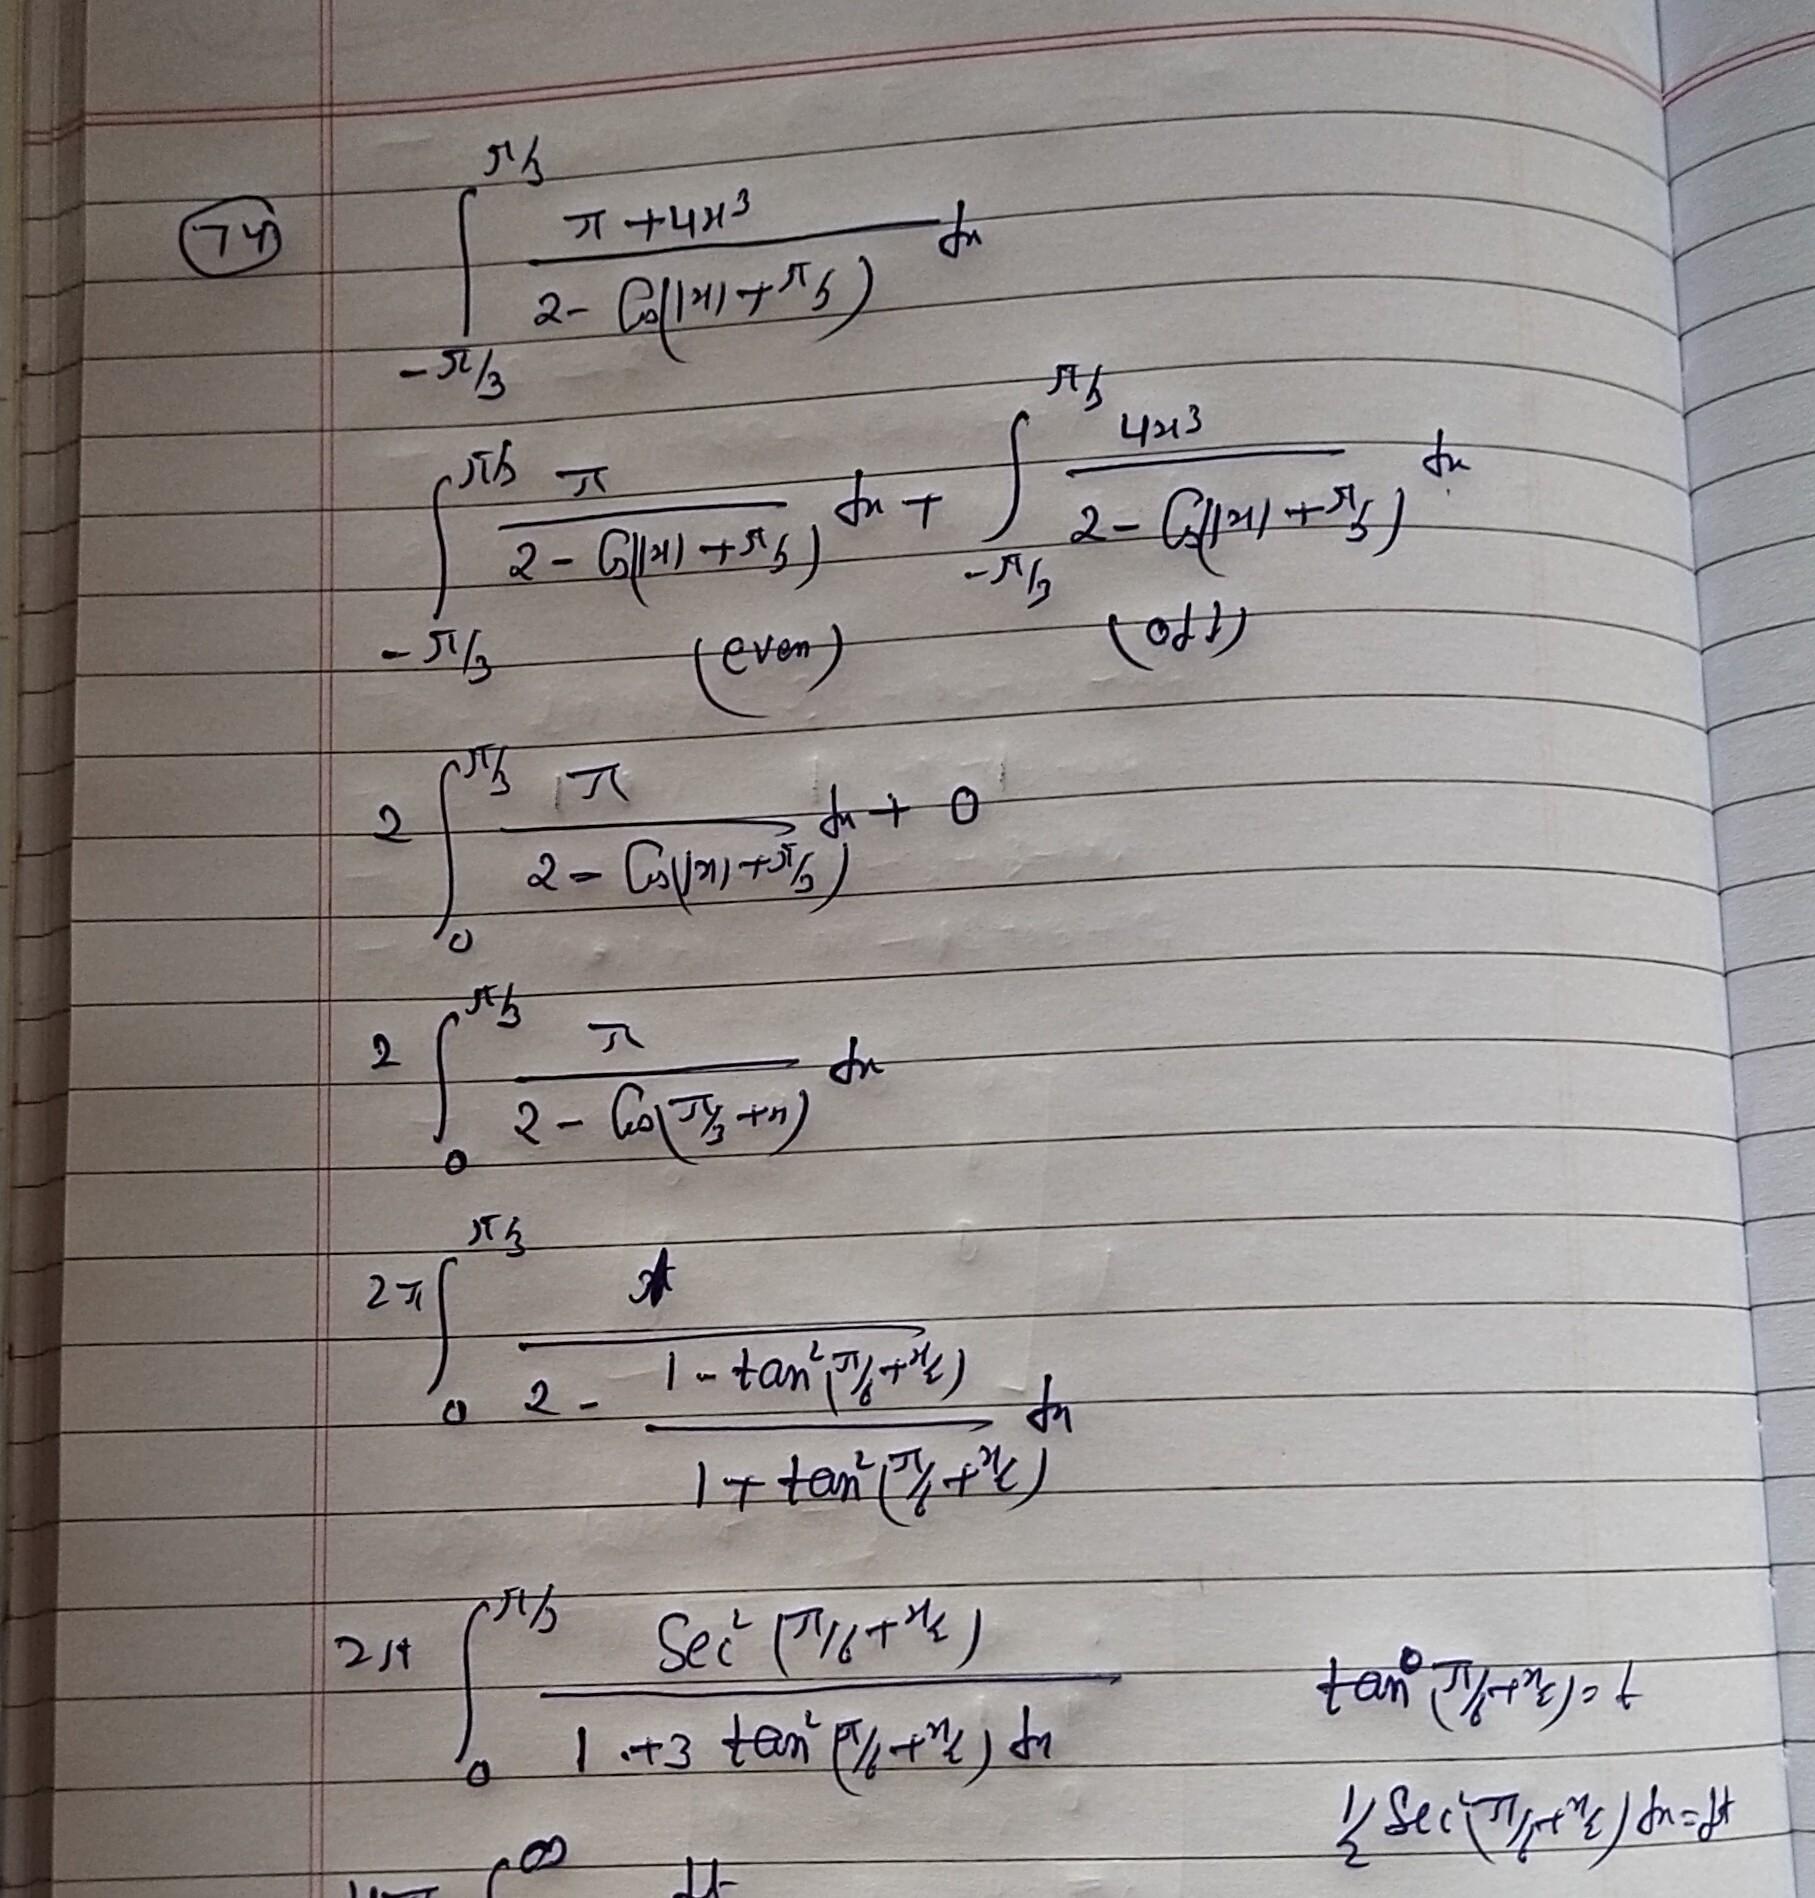 74) ∫_{-π/3}^{π/3} (π + 4x³)/(2 - Cos(|x| + π/3)) dx
∫_{-π/3}^{π/3} π/(2 - Cos(|x| + π/3)) dx + ∫_{-π/3}^{π/3} 4x³/(2 - Cos(|x| + π/3)) dx
(even) (odd)
2 ∫_0^{π/3} π/(2 - Cos(|x| + π/3)) dx + 0
2 ∫_0^{π/3} π/(2 - Cos(π/3 + x)) dx
2π ∫_0^{π/3} 1/(2 - (1 - tan²(π/6 + x/2))/(1 + tan²(π/6 + x/2))) dx
2π ∫_0^{π/3} Sec²(π/6 + x/2)/(1 + 3 tan²(π/6 + x/2)) dx
tan(π/6 + x/2) = t
1/2 Sec²(π/6 + x/2) dx = dt
∞ dt